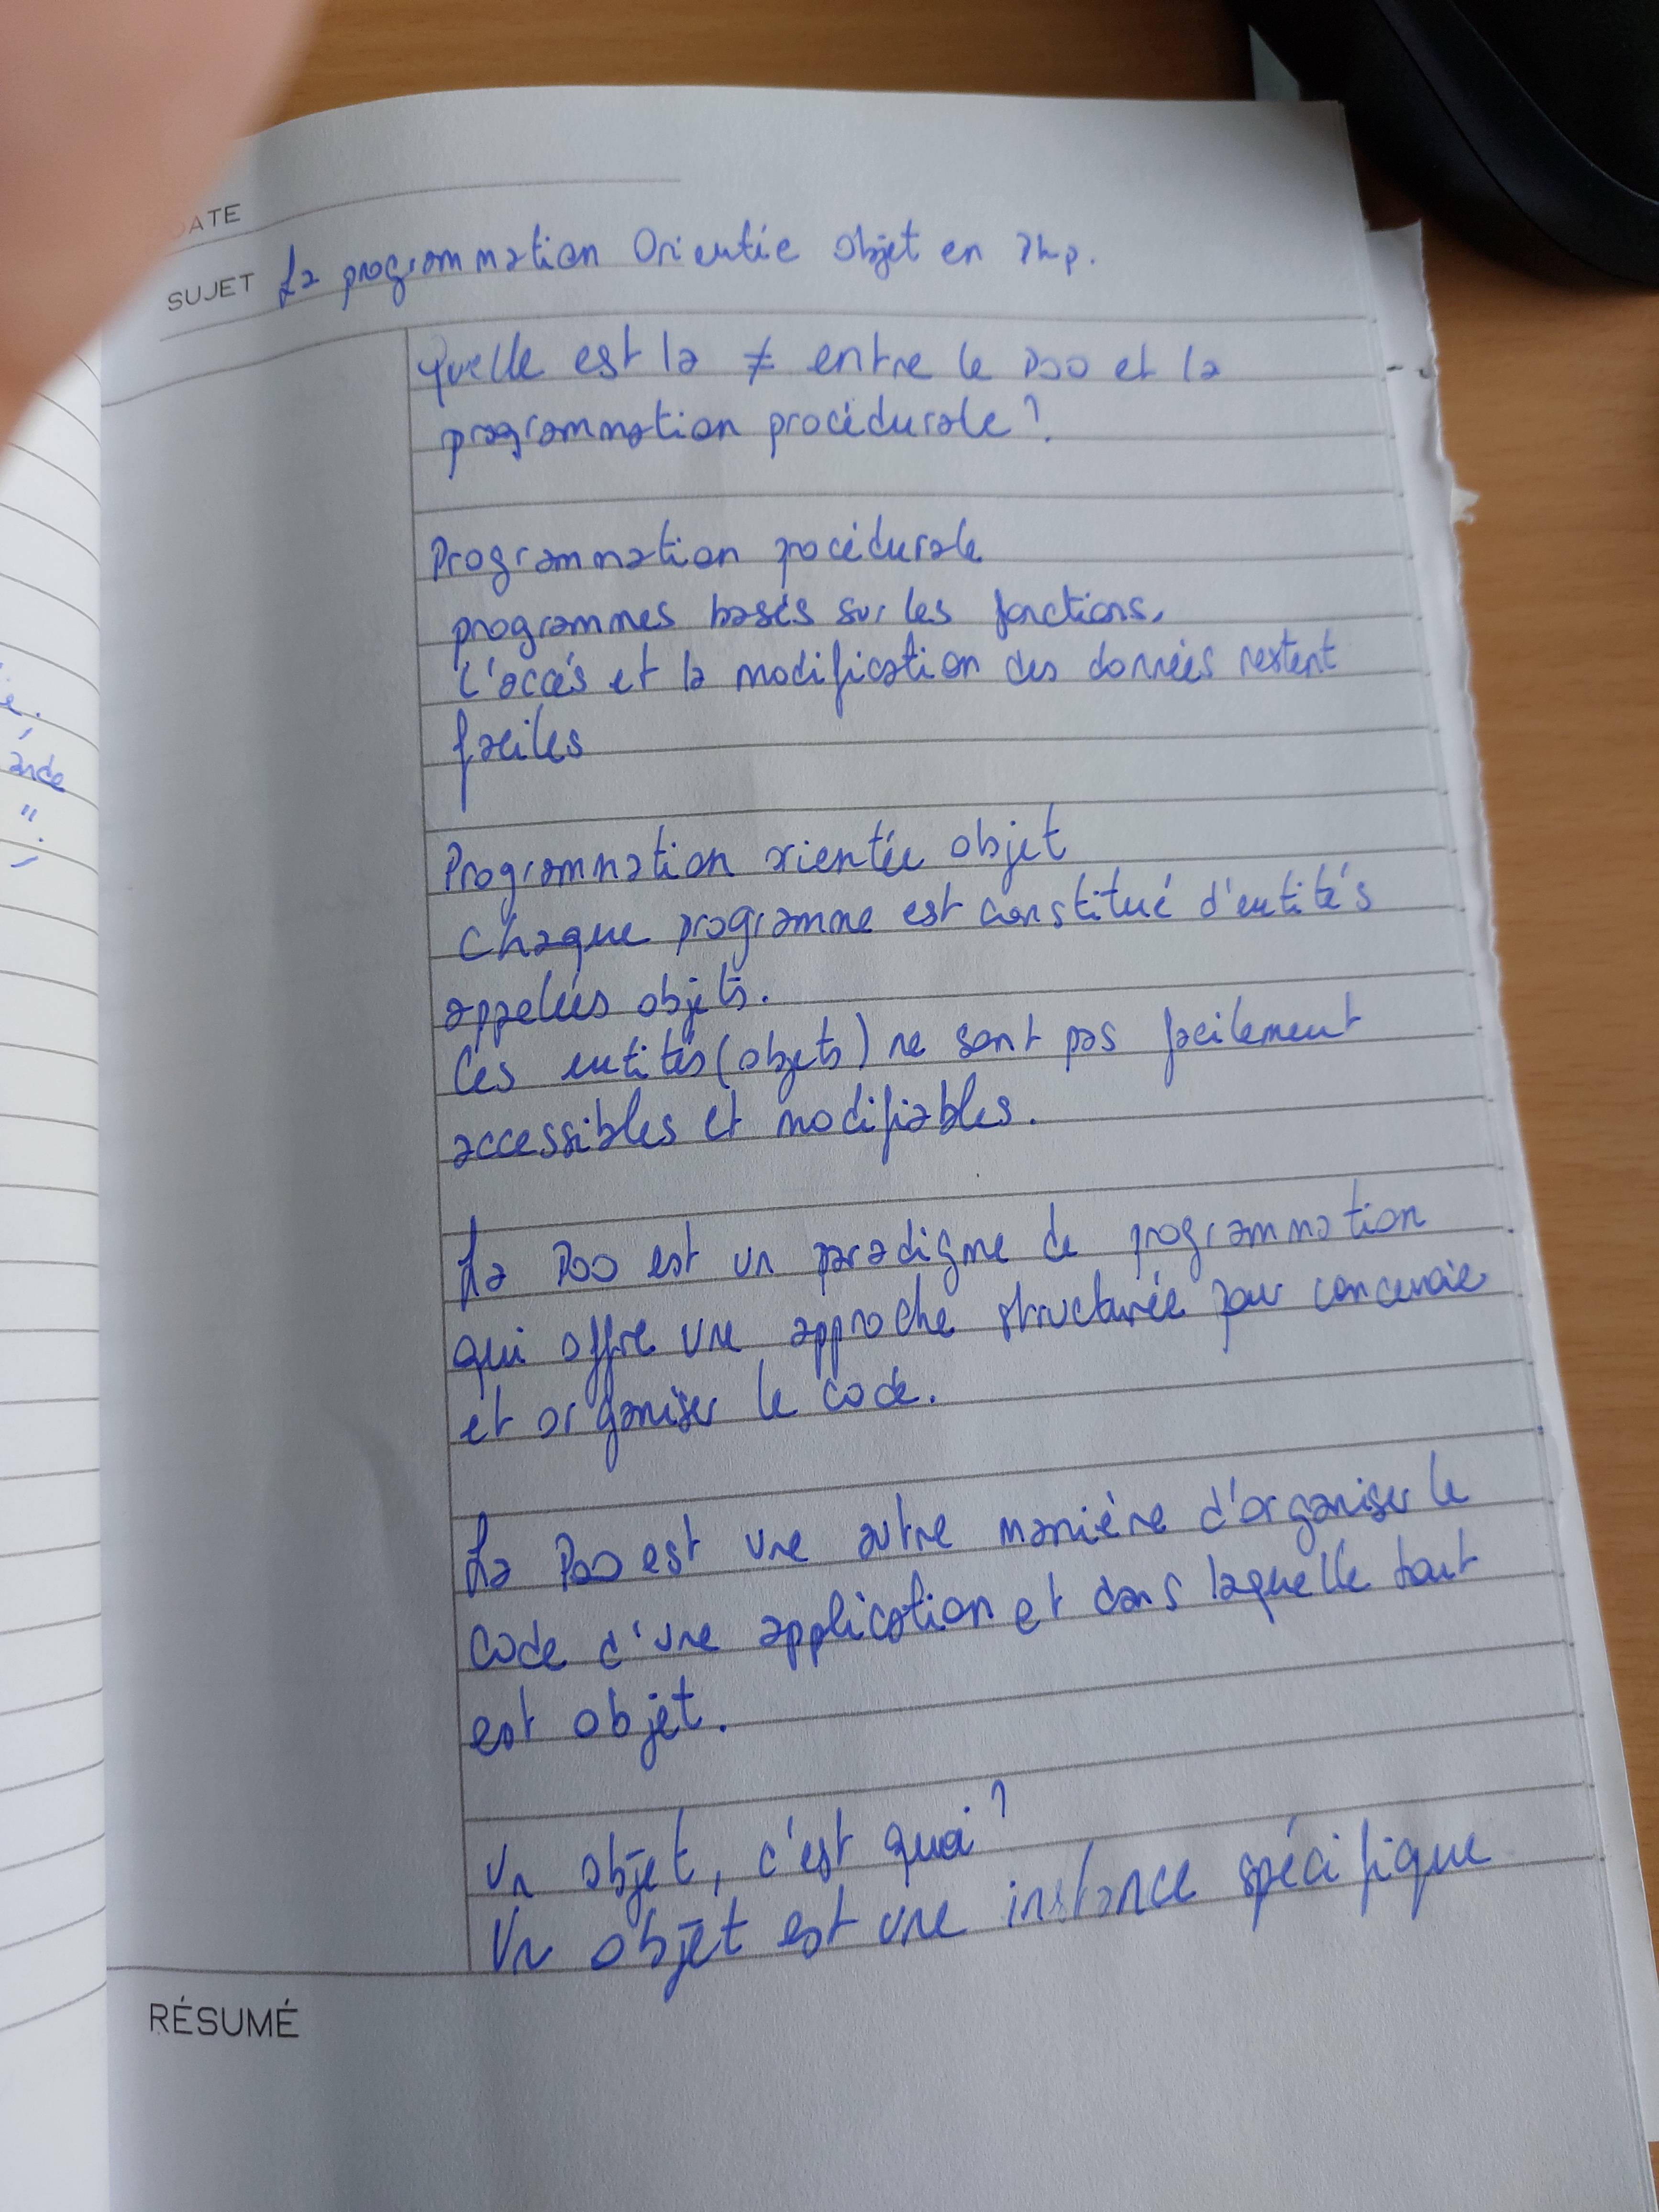 DATE
SUJET La programmation Orientée Objet en Php.
Quelle est la ≠ entre le POO et la
programmation procédurale ?
Programmation procédurale
programmes basés sur les fonctions.
L'accés et la modification des données restent
faciles
Programmation orientée objet
Chaque programme est constitué d'entités
appelées objets.
Ces entités (objets) ne sont pas facilement
accessibles et modifiables.
La POO est un paradigme de programmation
qui offre une approche structurée pour concevoir
et organiser le code.
La POO est une autre manière d'organiser le
code d'une application et dans laquelle tout
est objet.
Un objet, c'est quoi ?
Un objet est une instance spécifique
RÉSUMÉ